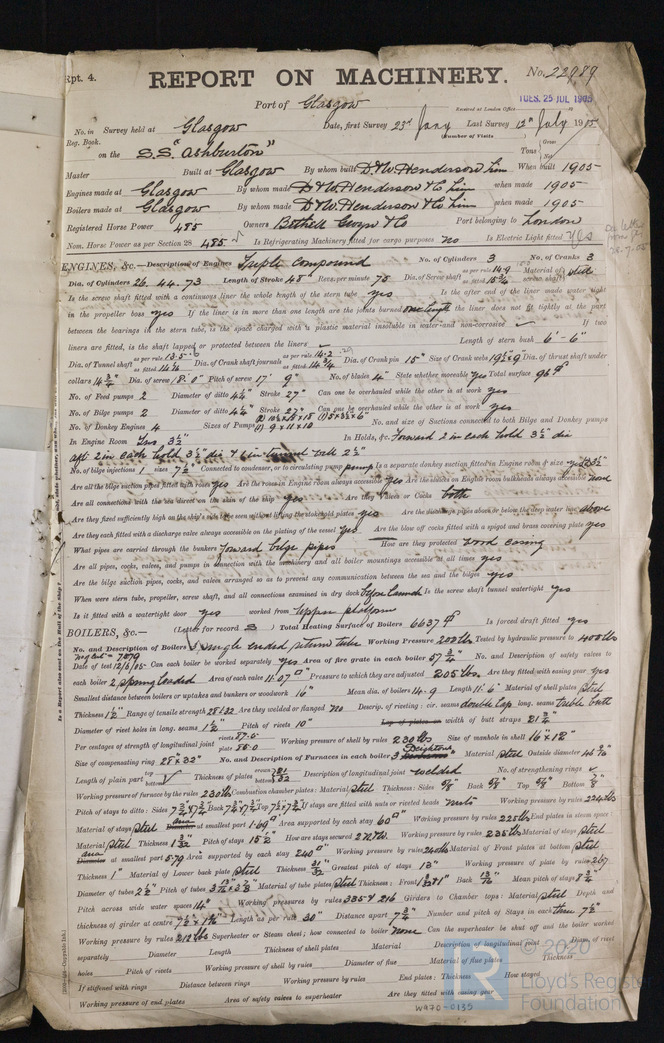 Rpt. 4.
REPORT ON MACHINERY.
No. 22989
Port of Glasgow
Received at London Office
TUES. 25 JUL 1905
No. in Survey held at Glasgow Date, first Survey 23rd Jany Last Survey 12th July 1905
Reg. Book. (Number of Visits)
on the S.S. "Ashburton" Tons Gross Net
Master Built at Glasgow By whom built D. & W. Henderson Lim When built 1905
Engines made at Glasgow By whom made D & W Henderson & Co Lim when made 1905
Boilers made at Glasgow By whom made D & W Henderson & Co Lim when made 1905
Registered Horse Power 485 Owners Bethell Gwyn & Co Port belonging to London
Nom. Horse Power as per Section 28 485 Is Refrigerating Machinery fitted for cargo purposes No Is Electric Light fitted Yes
ENGINES, &c.—Description of Engines Triple Compound No. of Cylinders 3 No. of Cranks 3
Dia. of Cylinders 26. 44. 73 Length of Stroke 48" Revs. per minute 75 Dia. of Screw shaft as per rule 14.9 as fitted Material of screw shaft steel
Is the screw shaft fitted with a continuous liner the whole length of the stern tube yes Is the after end of the liner made water tight
in the propeller boss yes If the liner is in more than one length are the joints burned one length If the liner does not fit tightly at the part
between the bearings in the stern tube, is the space charged with a plastic material insoluble in water and non-corrosive If two
liners are fitted, is the shaft lapped or protected between the liners Length of stern bush 6'-6"
Dia. of Tunnel shaft as per rule 13.5 as fitted Dia. of Crank shaft journals as per rule 14.2 as fitted Dia. of Crank pin 15" Size of Crank webs Dia. of thrust shaft under
collars 14 3/4" Dia. of screw 18' 0" Pitch of screw 17' 9" No. of blades 4 State whether moveable yes Total surface 96
No. of Feed pumps 2 Diameter of ditto Stroke 27" Can one be overhauled while the other is at work yes
No. of Bilge pumps 2 Diameter of ditto Stroke 27" Can one be overhauled while the other is at work yes
No. of Donkey Engines 4 Sizes of Pumps No. and size of Suctions connected to both Bilge and Donkey pumps
In Engine Room Two 3½" In Holds, &c. Forward 2 in each hold 3½" dia
aft 2 in each hold 3½" dia & 1 in tunnel well 2½"
No. of bilge injections 1 sizes 7½" Connected to condenser, or to circulating pump pump Is a separate donkey suction fitted in Engine room & size
Are all the bilge suction pipes fitted with roses yes Are the roses in Engine room always accessible yes Are the sluices on Engine room bulkheads always accessible none
Are all connections with the sea direct on the skin of the ship yes Are they Valves or Cocks both
Are they fixed sufficiently high on the ship's side to be seen without lifting the stokehold plates yes Are the discharge pipes above or below the deep water line above
Are they each fitted with a discharge valve always accessible on the plating of the vessel yes Are the blow off cocks fitted with a spigot and brass covering plate yes
What pipes are carried through the bunkers Forward bilge pipes How are they protected Wood casing
Are all pipes, cocks, valves, and pumps in connection with the machinery and all boiler mountings accessible at all times yes
Are the bilge suction pipes, cocks, and valves arranged so as to prevent any communication between the sea and the bilges yes
When were stern tube, propeller, screw shaft, and all connections examined in dry dock before launch Is the screw shaft tunnel watertight yes
Is it fitted with a watertight door yes worked from Upper platform
BOILERS, &c.— (Letter for record S) Total Heating Surface of Boilers 6637 Is forced draft fitted yes
No. and Description of Boilers single ended return tube Working Pressure 200 lbs Tested by hydraulic pressure to 400 lbs
Date of test 12/5/05 Can each boiler be worked separately yes Area of fire grate in each boiler 57 3/4 No. and Description of safety valves to
each boiler 2 spring loaded Area of each valve 11.07 Pressure to which they are adjusted 205 lbs. Are they fitted with easing gear yes
Smallest distance between boilers or uptakes and bunkers or woodwork 16" Mean dia. of boilers 14.9 Length 11'.6" Material of shell plates steel
Thickness Range of tensile strength 28/32 Are they welded or flanged no Descrip. of riveting: cir. seams double lap long. seams treble butt
Diameter of rivet holes in long. seams 1½" Pitch of rivets 10" Lap of plates or width of butt straps 21 3/4"
Per centages of strength of longitudinal joint rivets plate Working pressure of shell by rules 230 lbs Size of manhole in shell 16" x 12"
Size of compensating ring 28" x 32" No. and Description of Furnaces in each boiler 3 Deighton's Material steel Outside diameter
Length of plain part top bottom Thickness of plates crown bottom Description of longitudinal joint welded No. of strengthening rings
Working pressure of furnace by the rules 230 lbs Combustion chamber plates: Material steel Thickness: Sides 5/8" Back Top 5/8" Bottom 7/8"
Pitch of stays to ditto: Sides Back Top If stays are fitted with nuts or riveted heads nuts Working pressure by rules 224 lbs
Material of stays steel area at smallest part 1.69 Area supported by each stay 60 Working pressure by rules 225 lbs End plates in steam space:
Material steel Thickness Pitch of stays 15½ How are stays secured Working pressure by rules 235 lbs Material of stays steel
area at smallest part 5.79 Area supported by each stay 240 Working pressure by rules 240 lbs Material of Front plates at bottom steel
Thickness 1" Material of Lower back plate steel Thickness Greatest pitch of stays 13" Working pressure of plate by rules 267
Diameter of tubes 2½" Pitch of tubes Material of tube plates steel Thickness: Front Back Mean pitch of stays
Pitch across wide water spaces 14" Working pressures by rules 335 & 216 Girders to Chamber tops: Material steel Depth and
thickness of girder at centre Length as per rule 30" Distance apart 7 3/4" Number and pitch of Stays in each three 7½"
Working pressure by rules 212 lbs Superheater or Steam chest; how connected to boiler none Can the superheater be shut off and the boiler worked
separately Diameter Length Thickness of shell plates Material Description of longitudinal joint Diam. of rivet
holes Pitch of rivets Working pressure of shell by rules Diameter of flue Material of flue plates Thickness
If stiffened with rings Distance between rings Working pressure by rules End plates: Thickness How stayed
Working pressure of end plates Area of safety valves to superheater Are they fitted with easing gear
W970-0135
© 2020
Lloyd's Register
Foundation